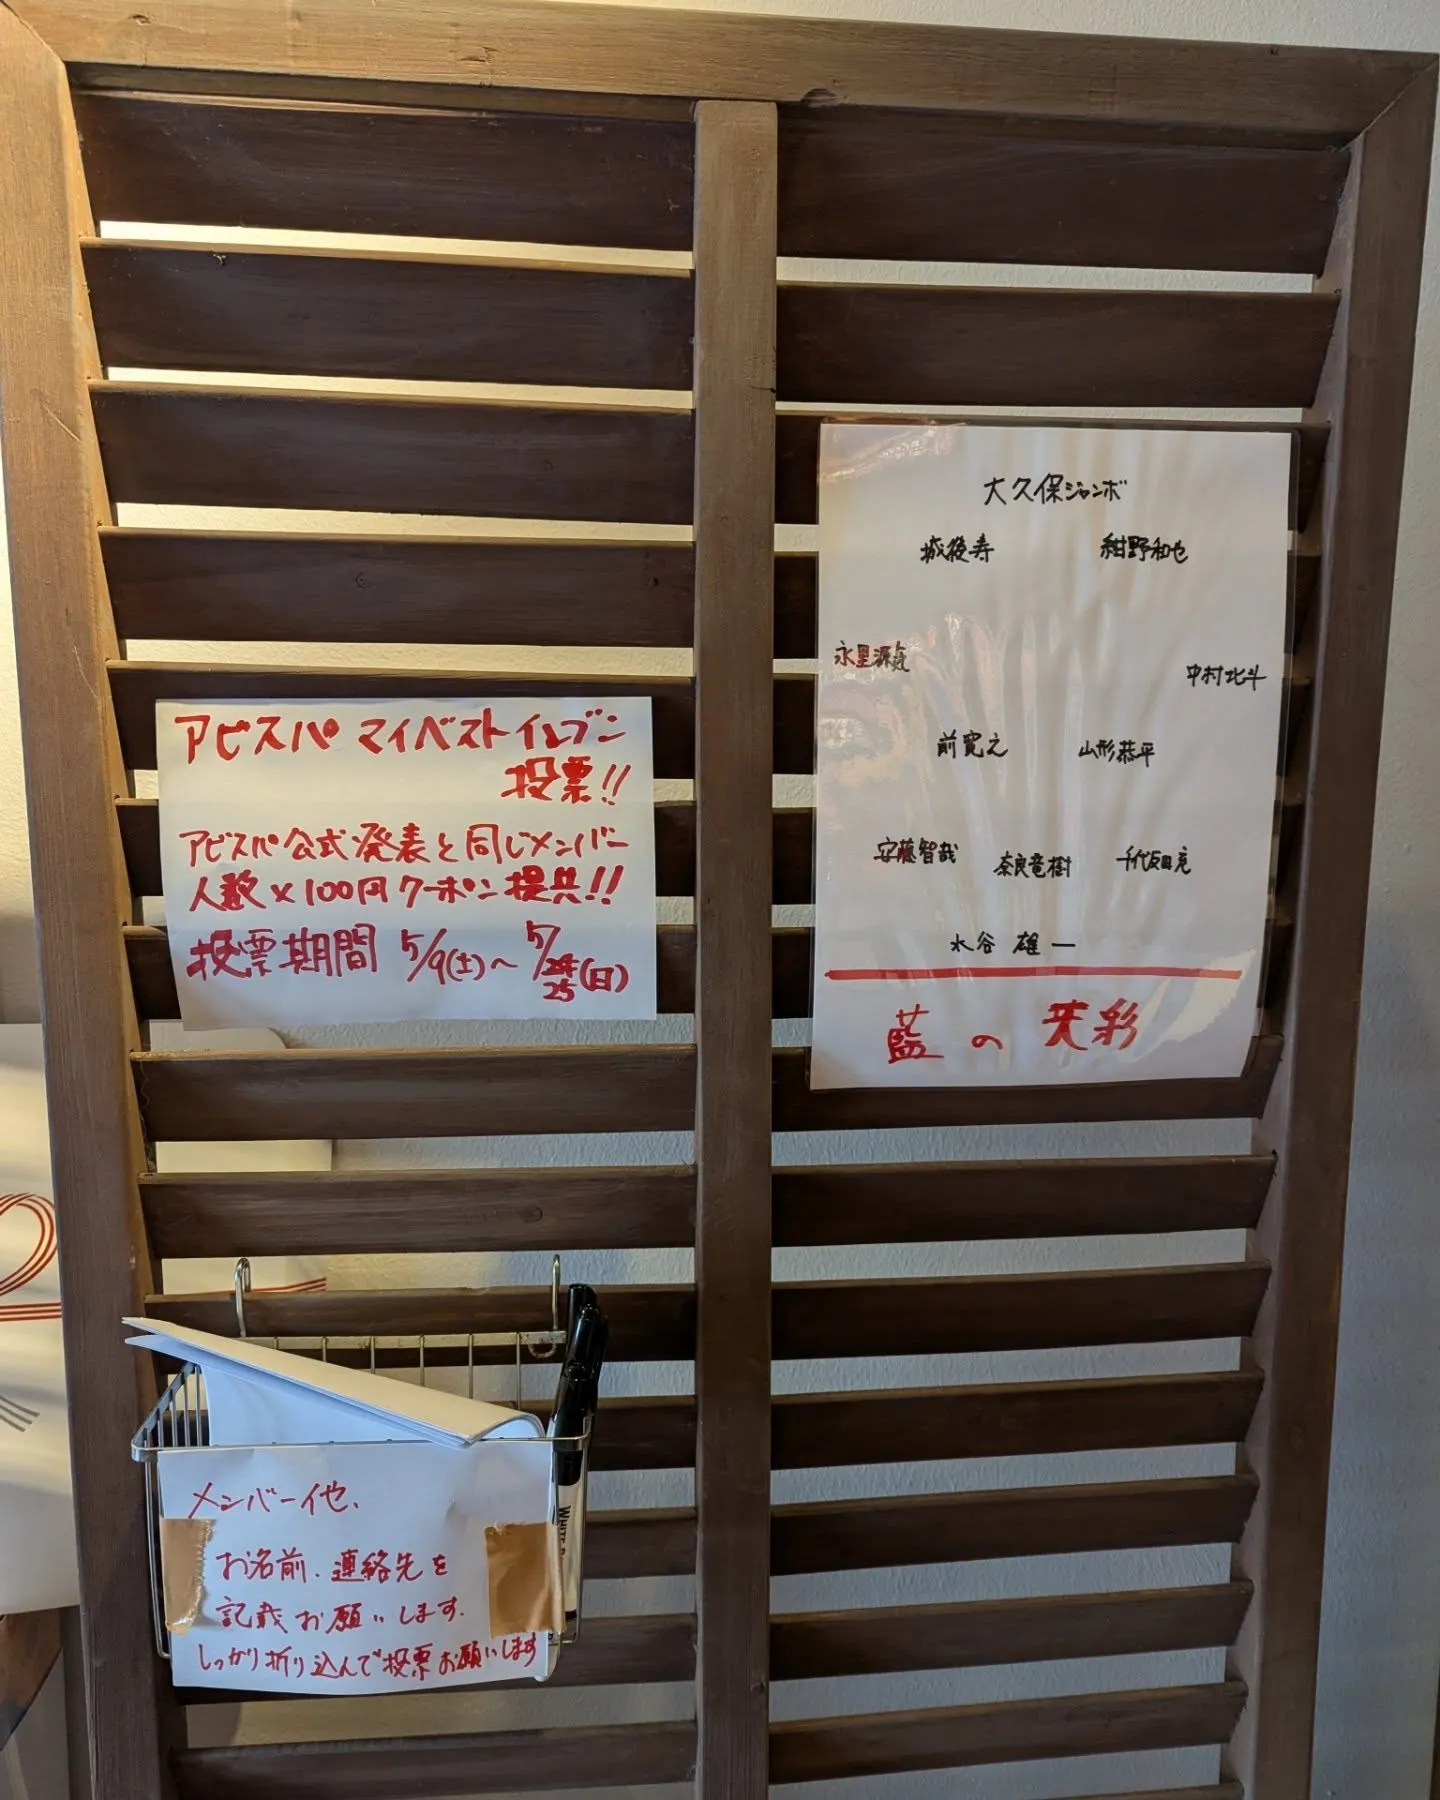 アビスパ マイベストイレブン
投票!!
アビスパ公式発表と同じメンバー
人数×100円クーポン提供!!
投票期間 5/9(土)～5/25(日)
大久保ジャンボ
城後寿 紺野和也
永里源気 中村北斗
前寛之 山形恭平
安藤智哉 奈良竜樹 千代反田充
水谷 雄一
藍の 英彩
メンバー他、
お名前、連絡先を
記載お願いします.
しっかり折り込んで投票お願いします
WHITE